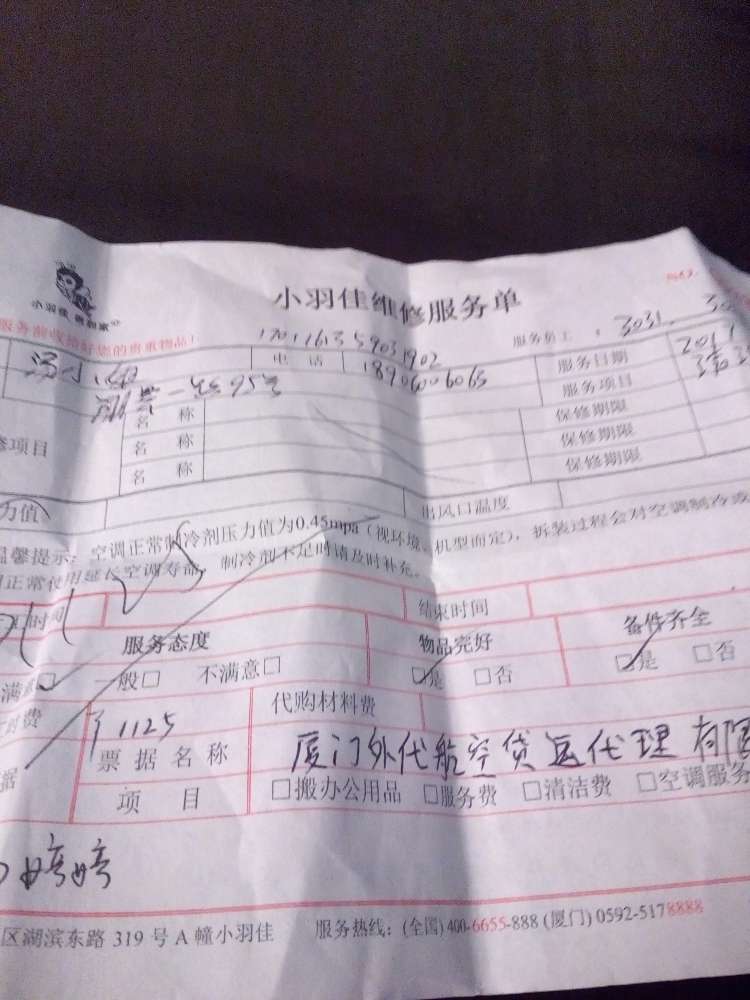 小羽佳维修服务单
小羽佳
服务前收拾好您的贵重物品!
服务员工: 3031
电话 18906006065 服务日期
服务项目
名称 保修期限
名称 保修期限
修项目 名称 保修期限
力值 出风口温度
温馨提示:空调正常制冷剂压力值为0.45mpa(视环境、机型而定),拆装过程会对空调制冷
正常使用延长空调寿命,制冷剂不足时请及时补充。
时间 结束时间
服务态度 物品完好 备件齐全
满意□ 一般□ 不满意□ □是 □否 □是 □否
费 1125 代购材料费
据 票据名称 厦门外代航空货运代理有限
项目 □搬办公用品 □服务费 □清洁费 □空调服务
婷婷
区湖滨东路 319 号 A 幢小羽佳 服务热线:(全国)400-6655-888 (厦门) 0592-5178888